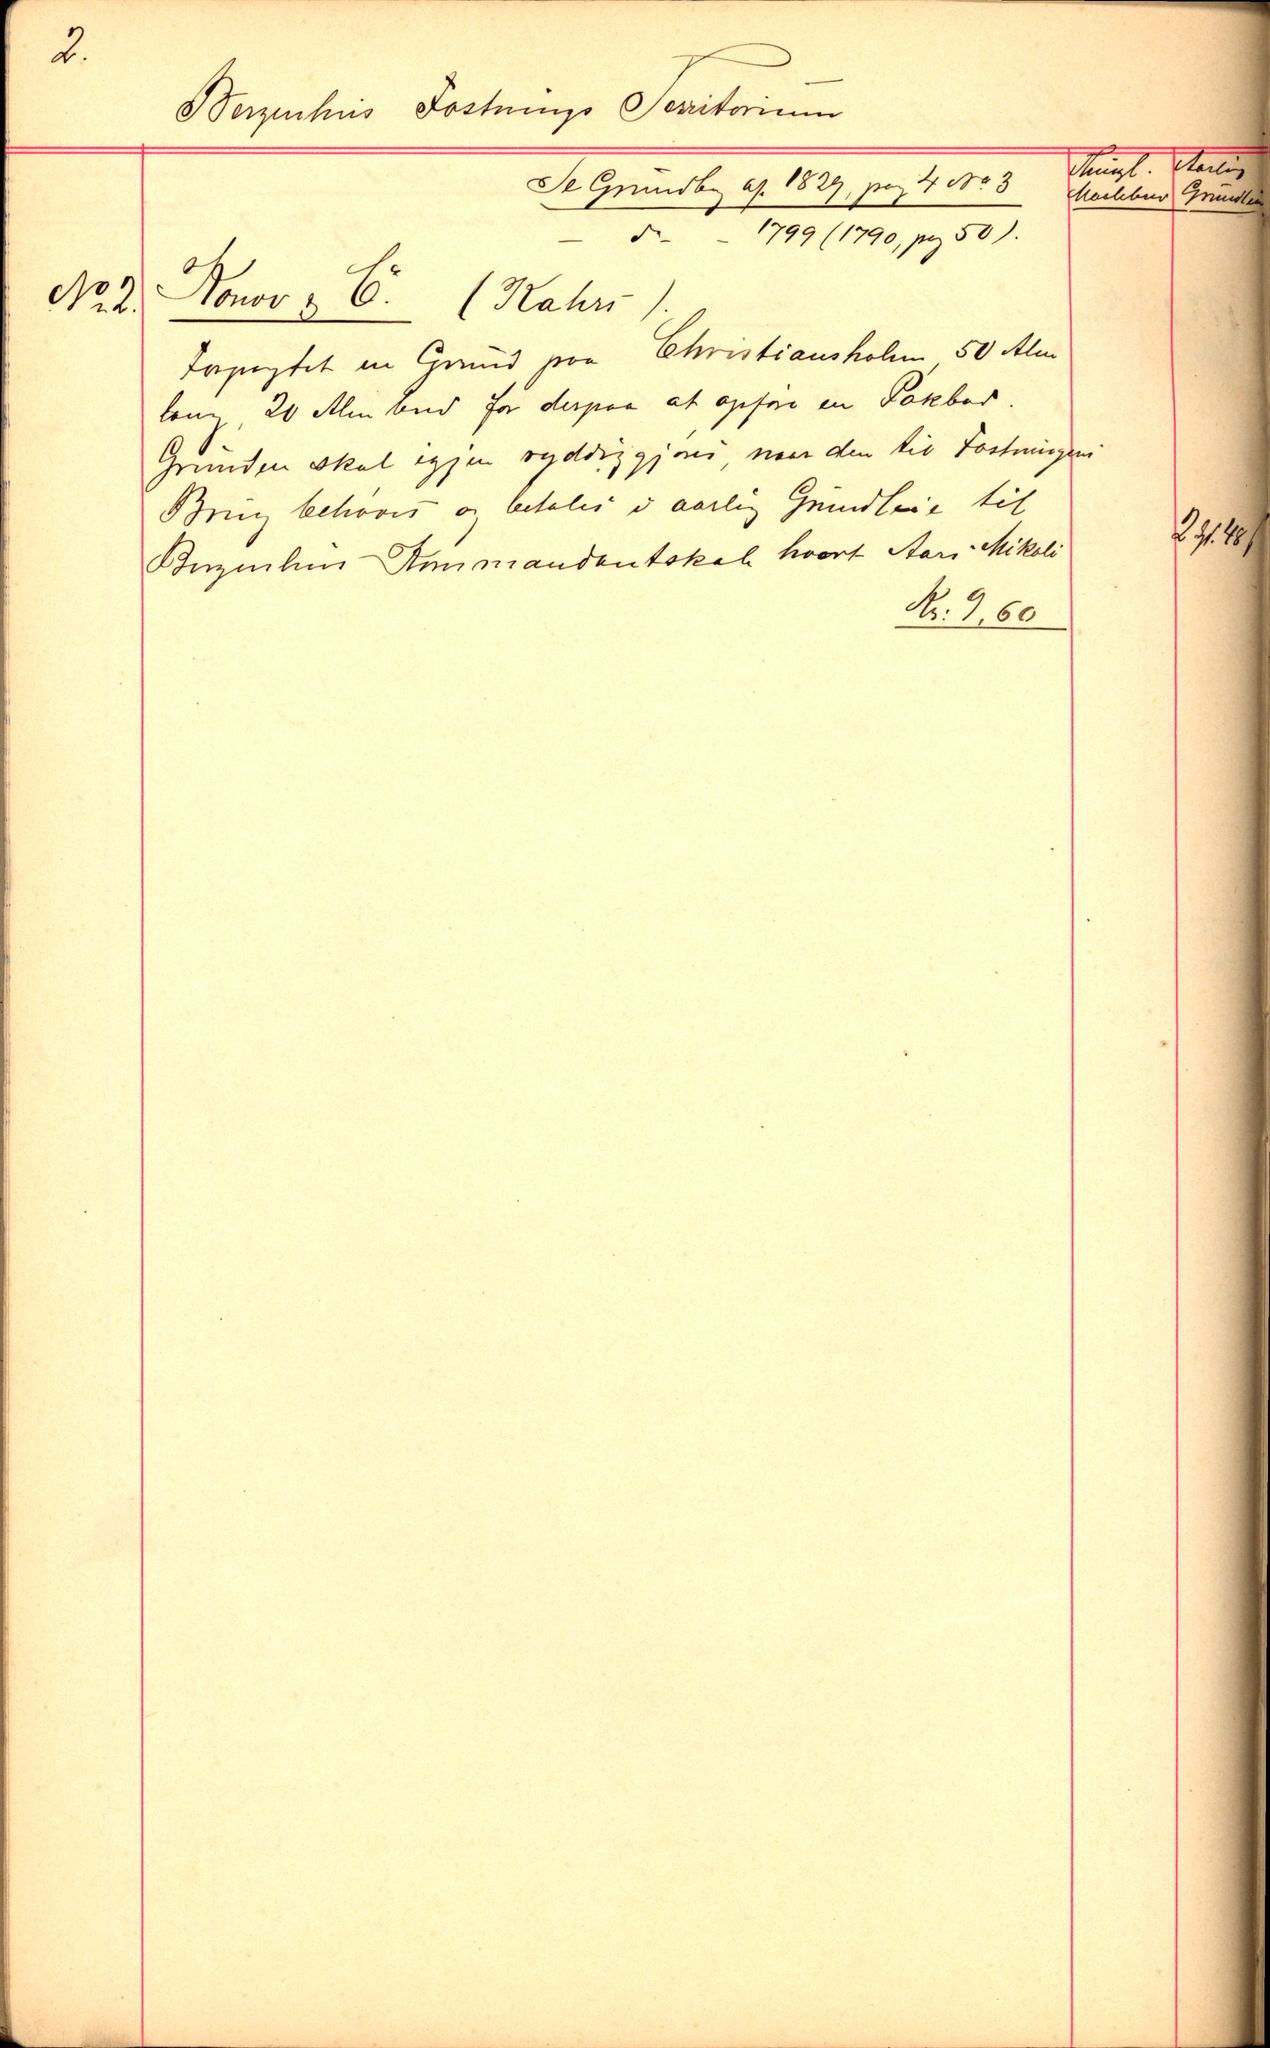 2.
Bergenhus Fæstnings Territorium
Thingl. Aarlig
Se Grundbog af 1829, pag 4 No 3
Grundleie
— do — 1799 (1790, pag 50).
No 2. Konov & Co. (Kahrs).
Forpagtet en Grund paa Christiansholm 50 Alen
lang, 20 Alen bred for derpaa at opføre en Pakbod.
Grunden skal igjen ryddiggjøres, naar den til Fæstningens
Brug behøves og betales i aarlig Grundleie til
2 48
Bergenhus Kommandantskab hvert Aars Mikeli
Kr. 9,60